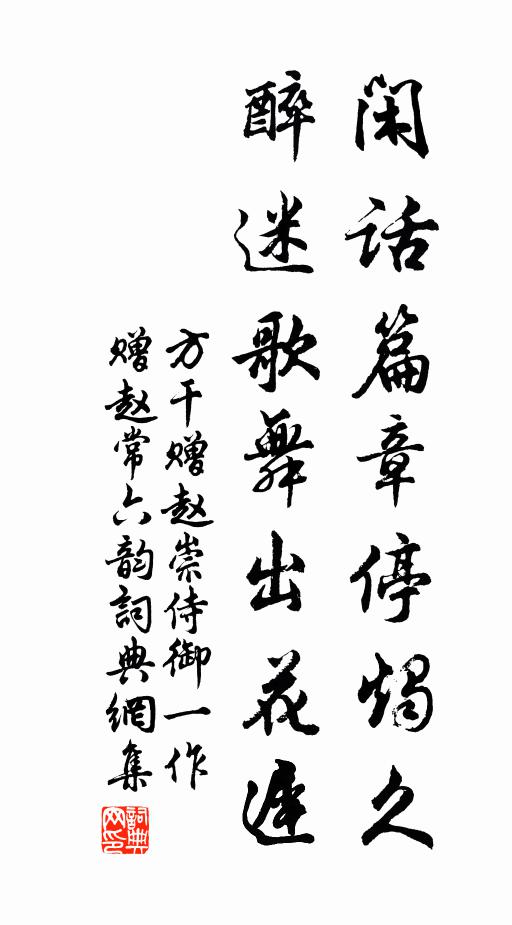 闲话篇章停烛久
醉迷歌舞出花遲
方干赠赵崇侍御一作
赠赵常六韵詞典網集
詞典网印